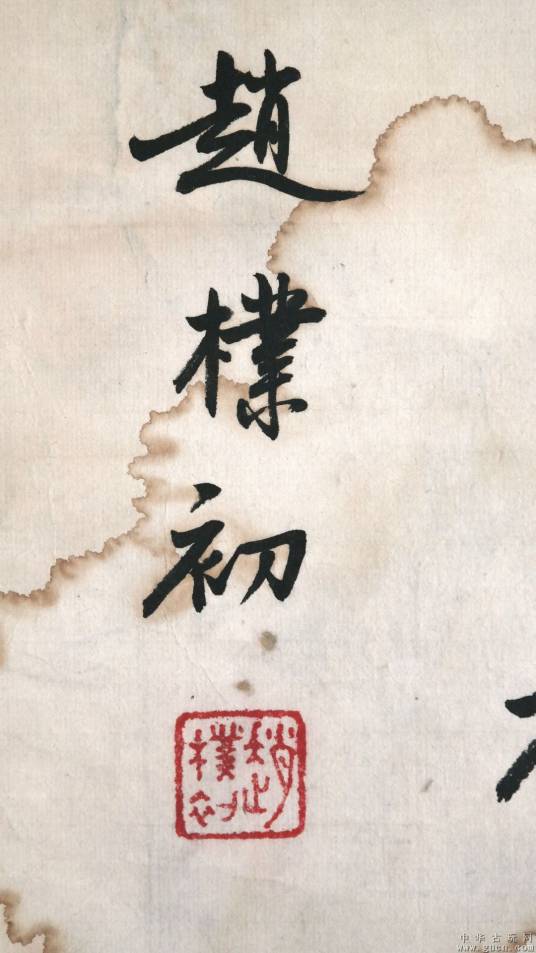 趙樸初
趙樸初
中华古玩网
www.gucn.com